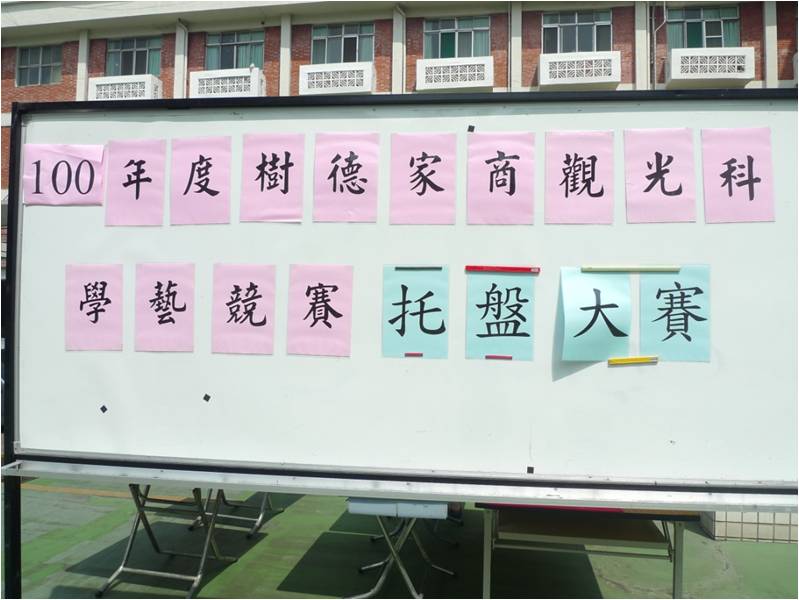 100年度樹德家商觀光科
學藝競賽托盤大賽